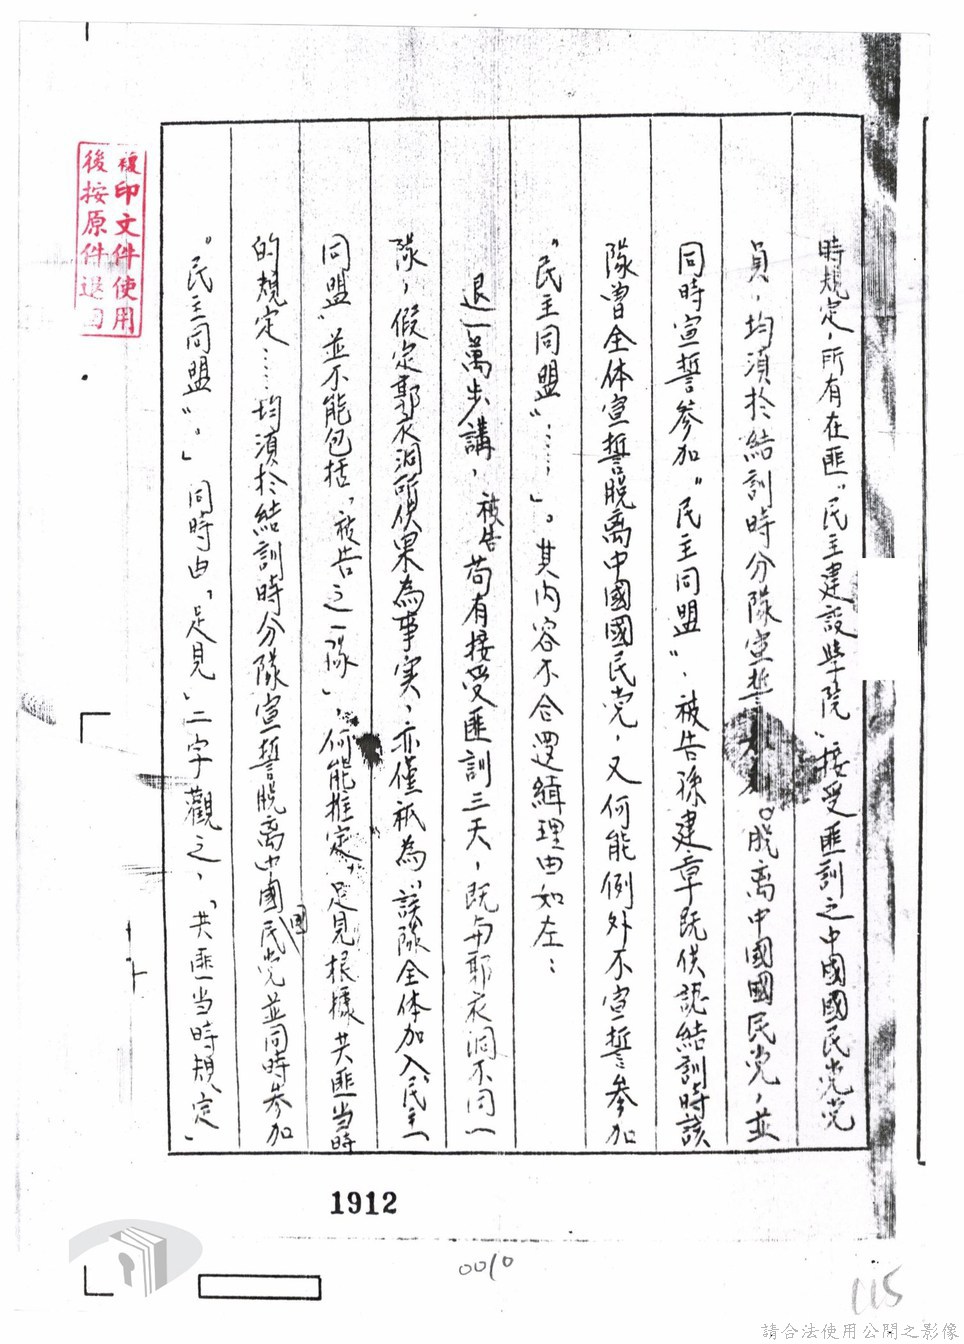 時規定，所有在匪〝民主建設學院〞接受匪訓之中國國民党党
員，均須於結訓時分隊宣誓。脱离中国國民党，並
同時宣誓參加〝民主同盟〞，被告孫建章既供認結訓時該
隊曾全体宣誓脱离中國國民党，又何能例外不宣誓參加
〝民主同盟〞……」。其内容不合邏緝理由如左：
退一萬步講，被告苟有接受匪訓三天，既与郭衣洞不同一
隊，假定郭衣洞所供果為事实，亦僅祇為〝該隊全体加入民主
同盟〞並不能包括「被告之一隊」，何能推定〝足見根據共匪当時
的規定……均須於結訓時分隊宣誓脱离中國国民党並同時參加
〝民主同盟〞。」同時由「足見」二字觀之，「共匪当時規定」
複印文件使用
後按原件退回
1912
0010
115
請合法使用公開之影像